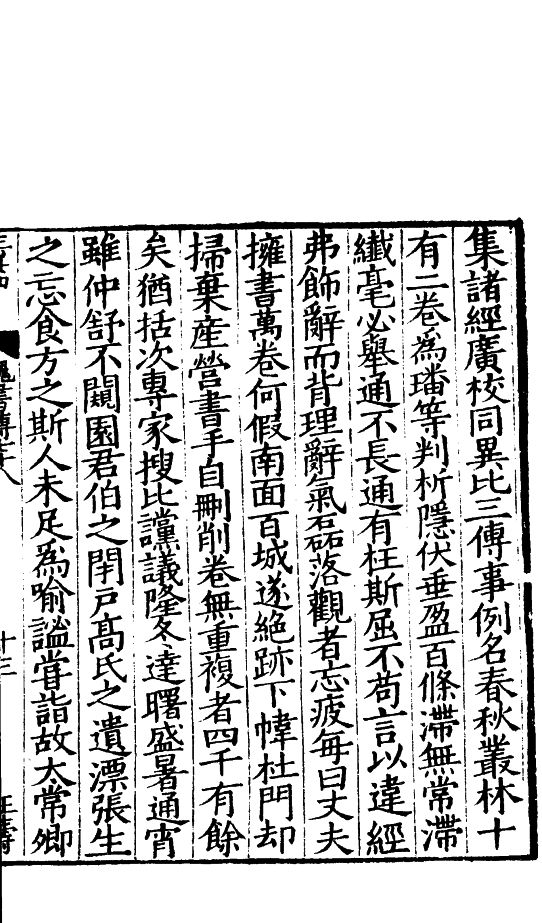 集諸經廣校同異比三傳事例名春秋叢林十
有二卷為璠等判析隱伏垂盈百條滯無常滯
纖毫必舉通不長通有枉斯屈不苟言以違經
弗飾辭而背理辭氣磊落觀者忘疲每曰丈夫
擁書萬卷何假南面百城遂絕跡下幃杜門却
掃棄產營書手自刪削卷無重複者四千有餘
矣猶括次專家搜比讜議隆冬達曙盛暑通宵
雖仲舒不闚園君伯之閉戶高氏之遺漂張生
之忘食方之斯人未足為喻謐甞詣故太常卿
十三